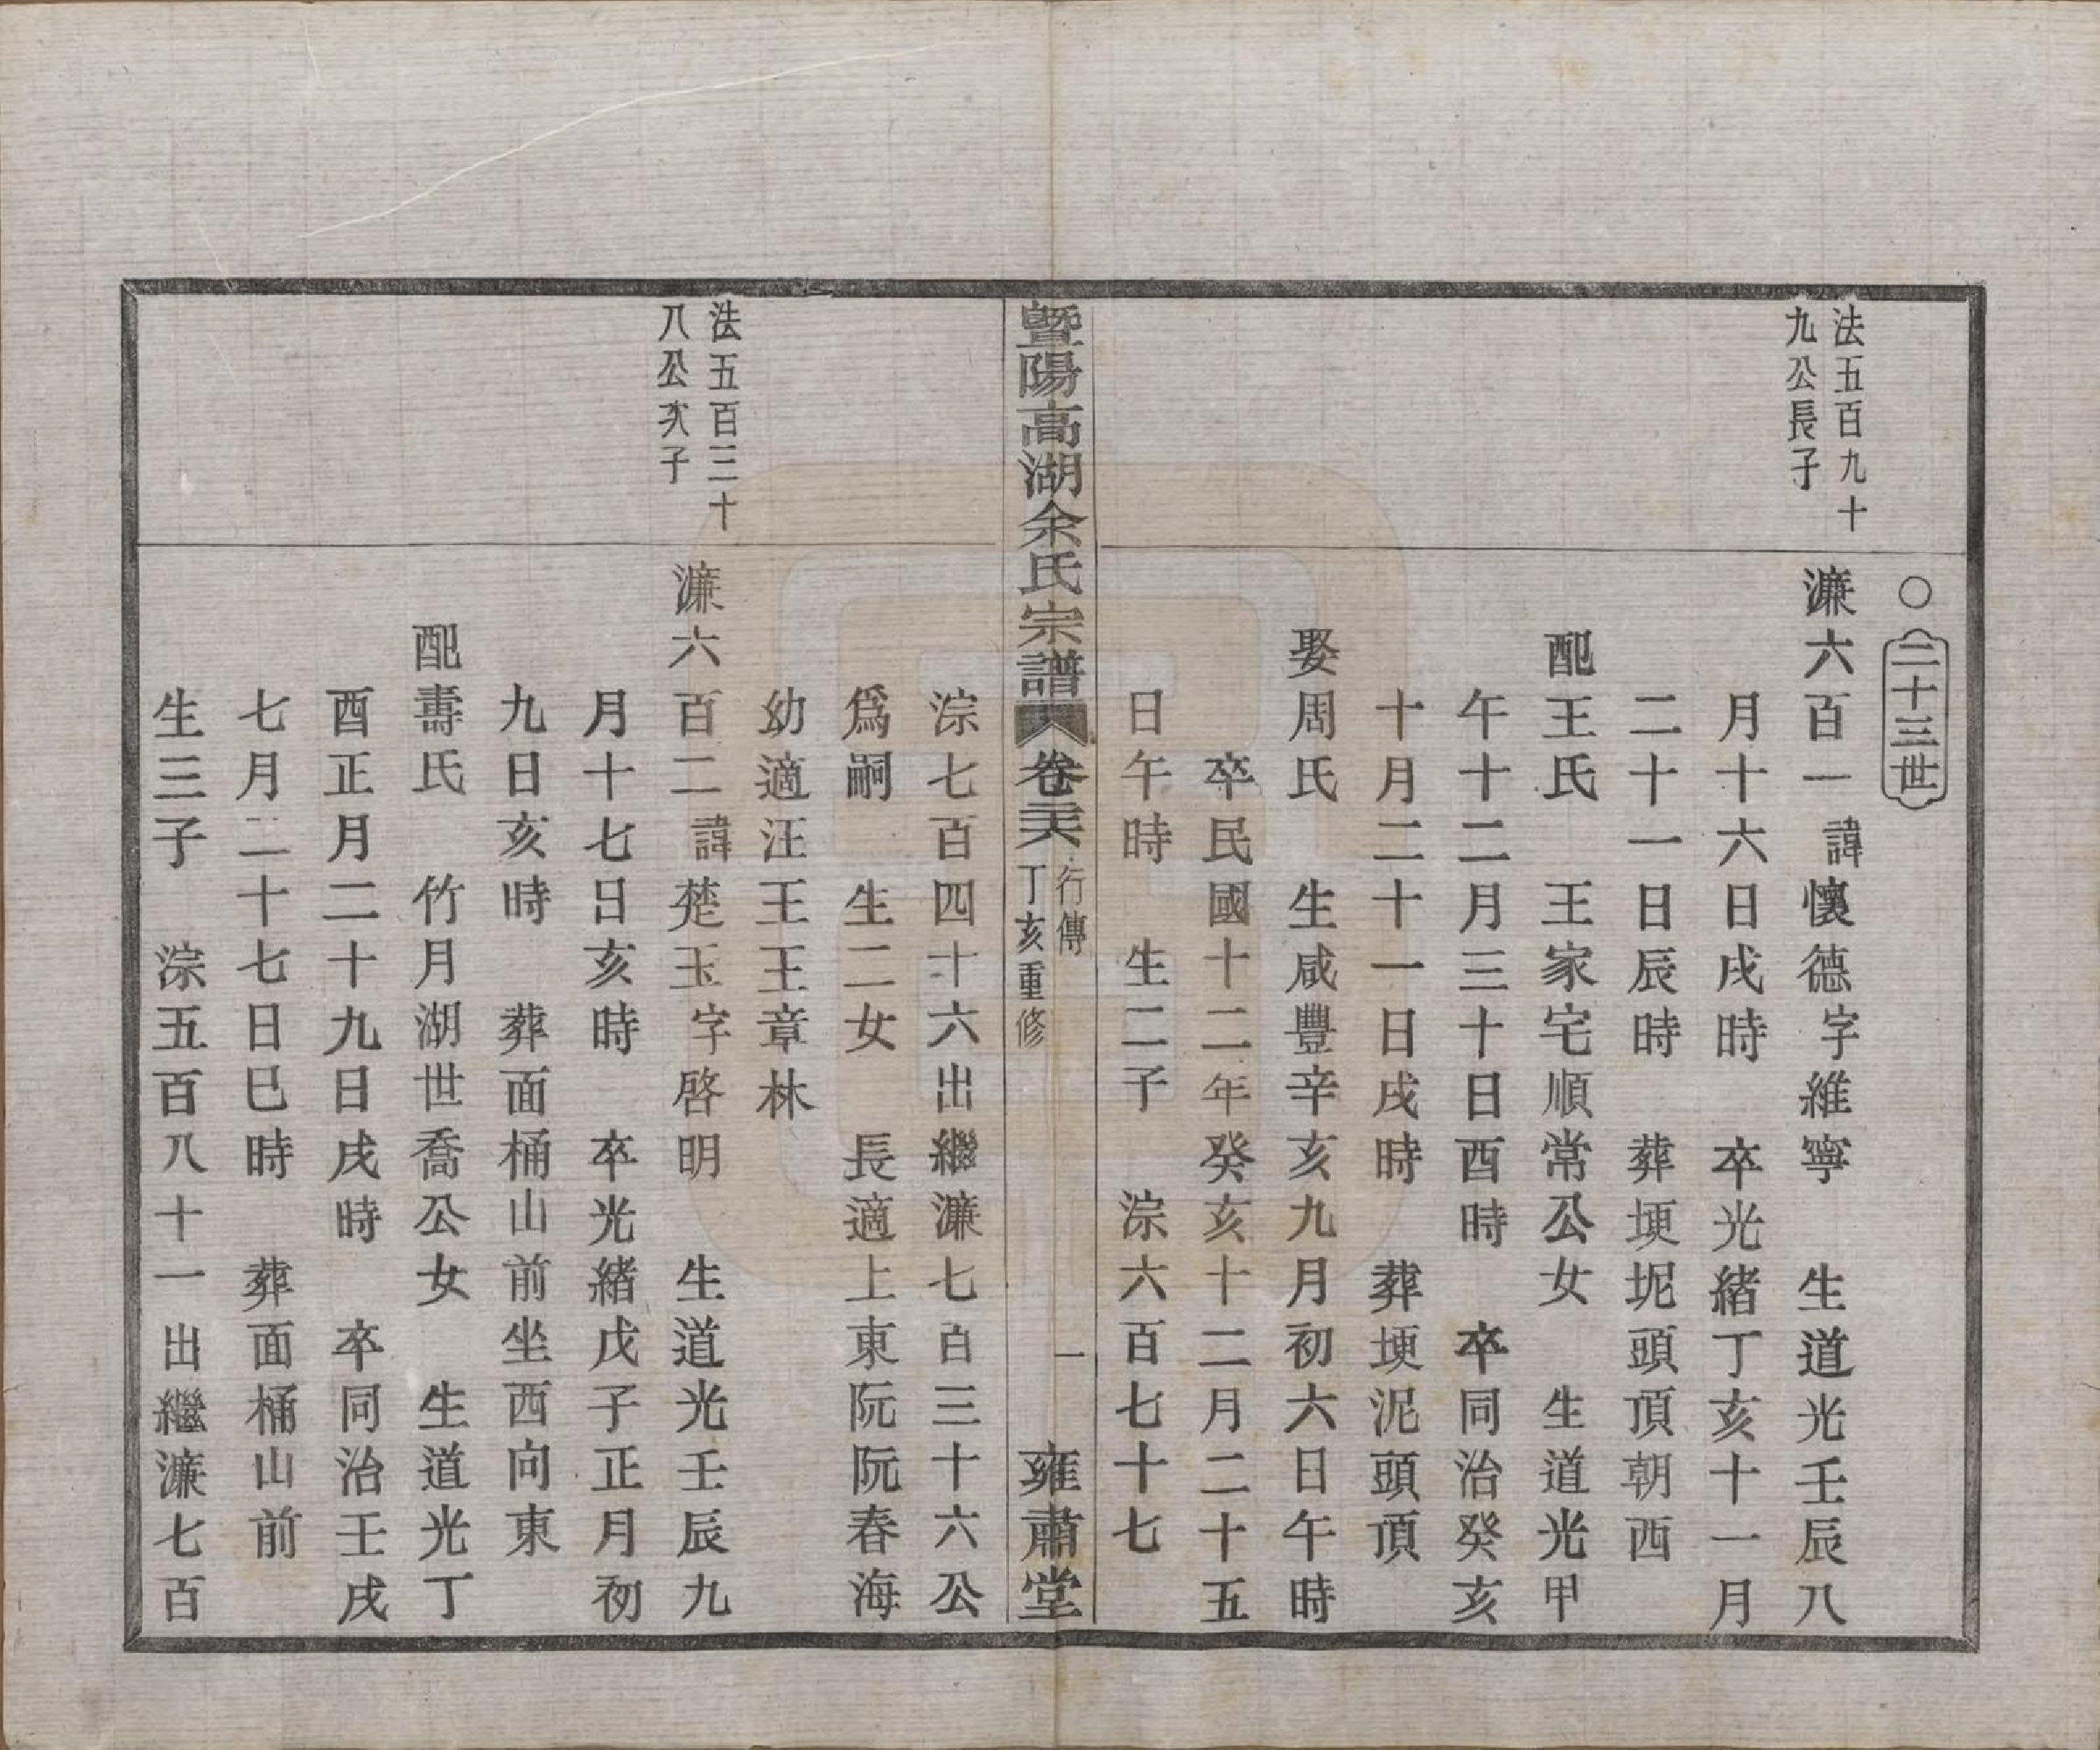 ○二十三世
法五百九十
九公長子
濂六百一諱懷德字維寧　生道光壬辰八
月十六日戌時　卒光緒丁亥十一月
二十一日辰時　葬埂坭頭頂朝西
配王氏　王家宅順常公女　生道光甲
午十二月三十日酉時　卒同治癸亥
十月二十一日戌時　葬埂泥頭頂
娶周氏　生咸豐辛亥九月初六日午時
卒民國十二年癸亥十二月二十五
日午時　生二子　淙六百七十七
暨陽高湖余氏宗譜
卷三六
行傳
丁亥重修
一
雍肅堂
淙七百四十六出繼濂七百三十六公
爲嗣　生二女　長適上東阮阮春海
幼適汪王王章林
法五百三十
八公次子
濂六百二諱楚玉字啓明　生道光壬辰九
月十七日亥時　卒光緒戊子正月初
九日亥時　葬面桶山前坐西向東
配壽氏　竹月湖世喬公女　生道光丁
酉正月二十九日戌時　卒同治壬戌
七月二十七日巳時　葬面桶山前
生三子　淙五百八十一出繼濂七百